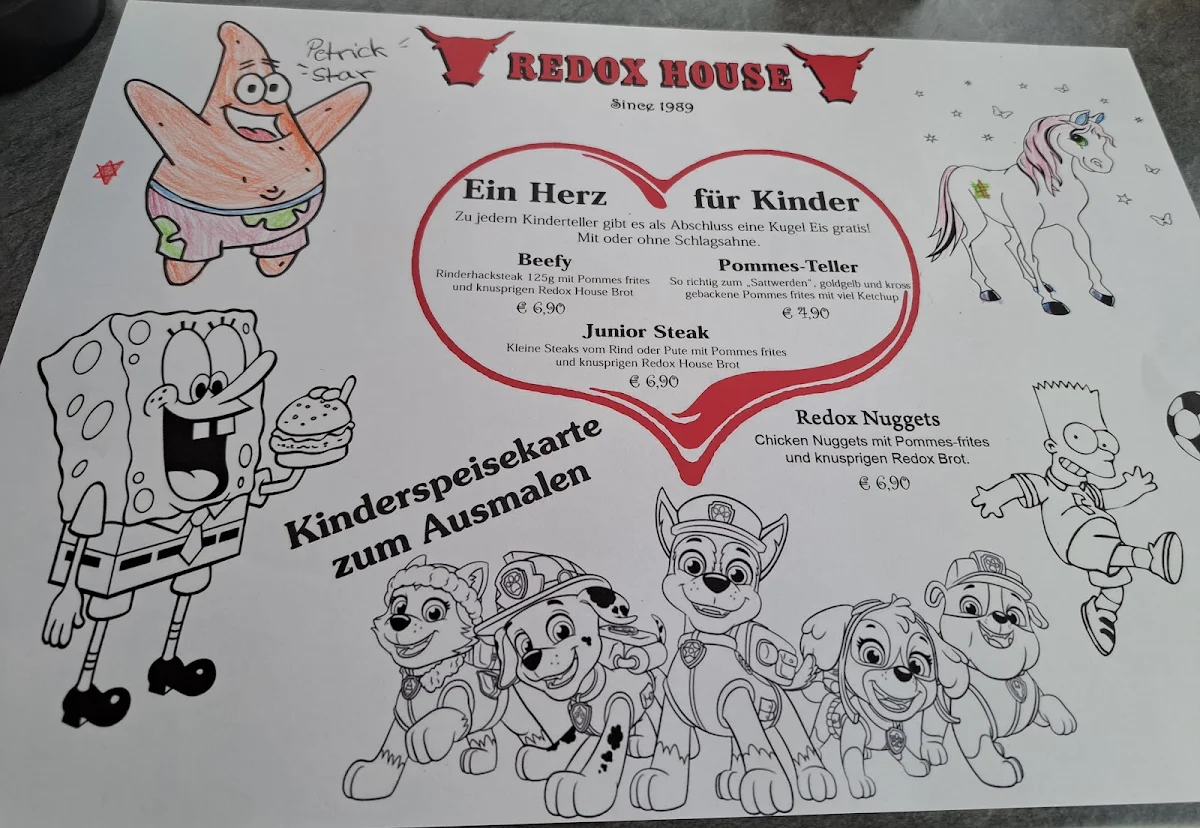 Petrick
Star
REDOX HOUSE
Since 1989
Ein Herz für Kinder
Zu jedem Kinderteller gibt es als Abschluss eine Kugel Eis gratis!
Mit oder ohne Schlagsahne.
Beefy
Rinderhacksteak 125g mit Pommes frites
und knusprigen Redox House Brot
€ 6,90
Pommes-Teller
So richtig zum „Sattwerden", goldgelb und kross
gebackene Pommes frites mit viel Ketchup
€ 4,90
Junior Steak
Kleine Steaks vom Rind oder Pute mit Pommes frites
und knusprigen Redox House Brot
€ 6,90
Redox Nuggets
Chicken Nuggets mit Pommes-frites
und knusprigen Redox Brot.
€ 6,90
Kinderspeisekarte
zum Ausmalen